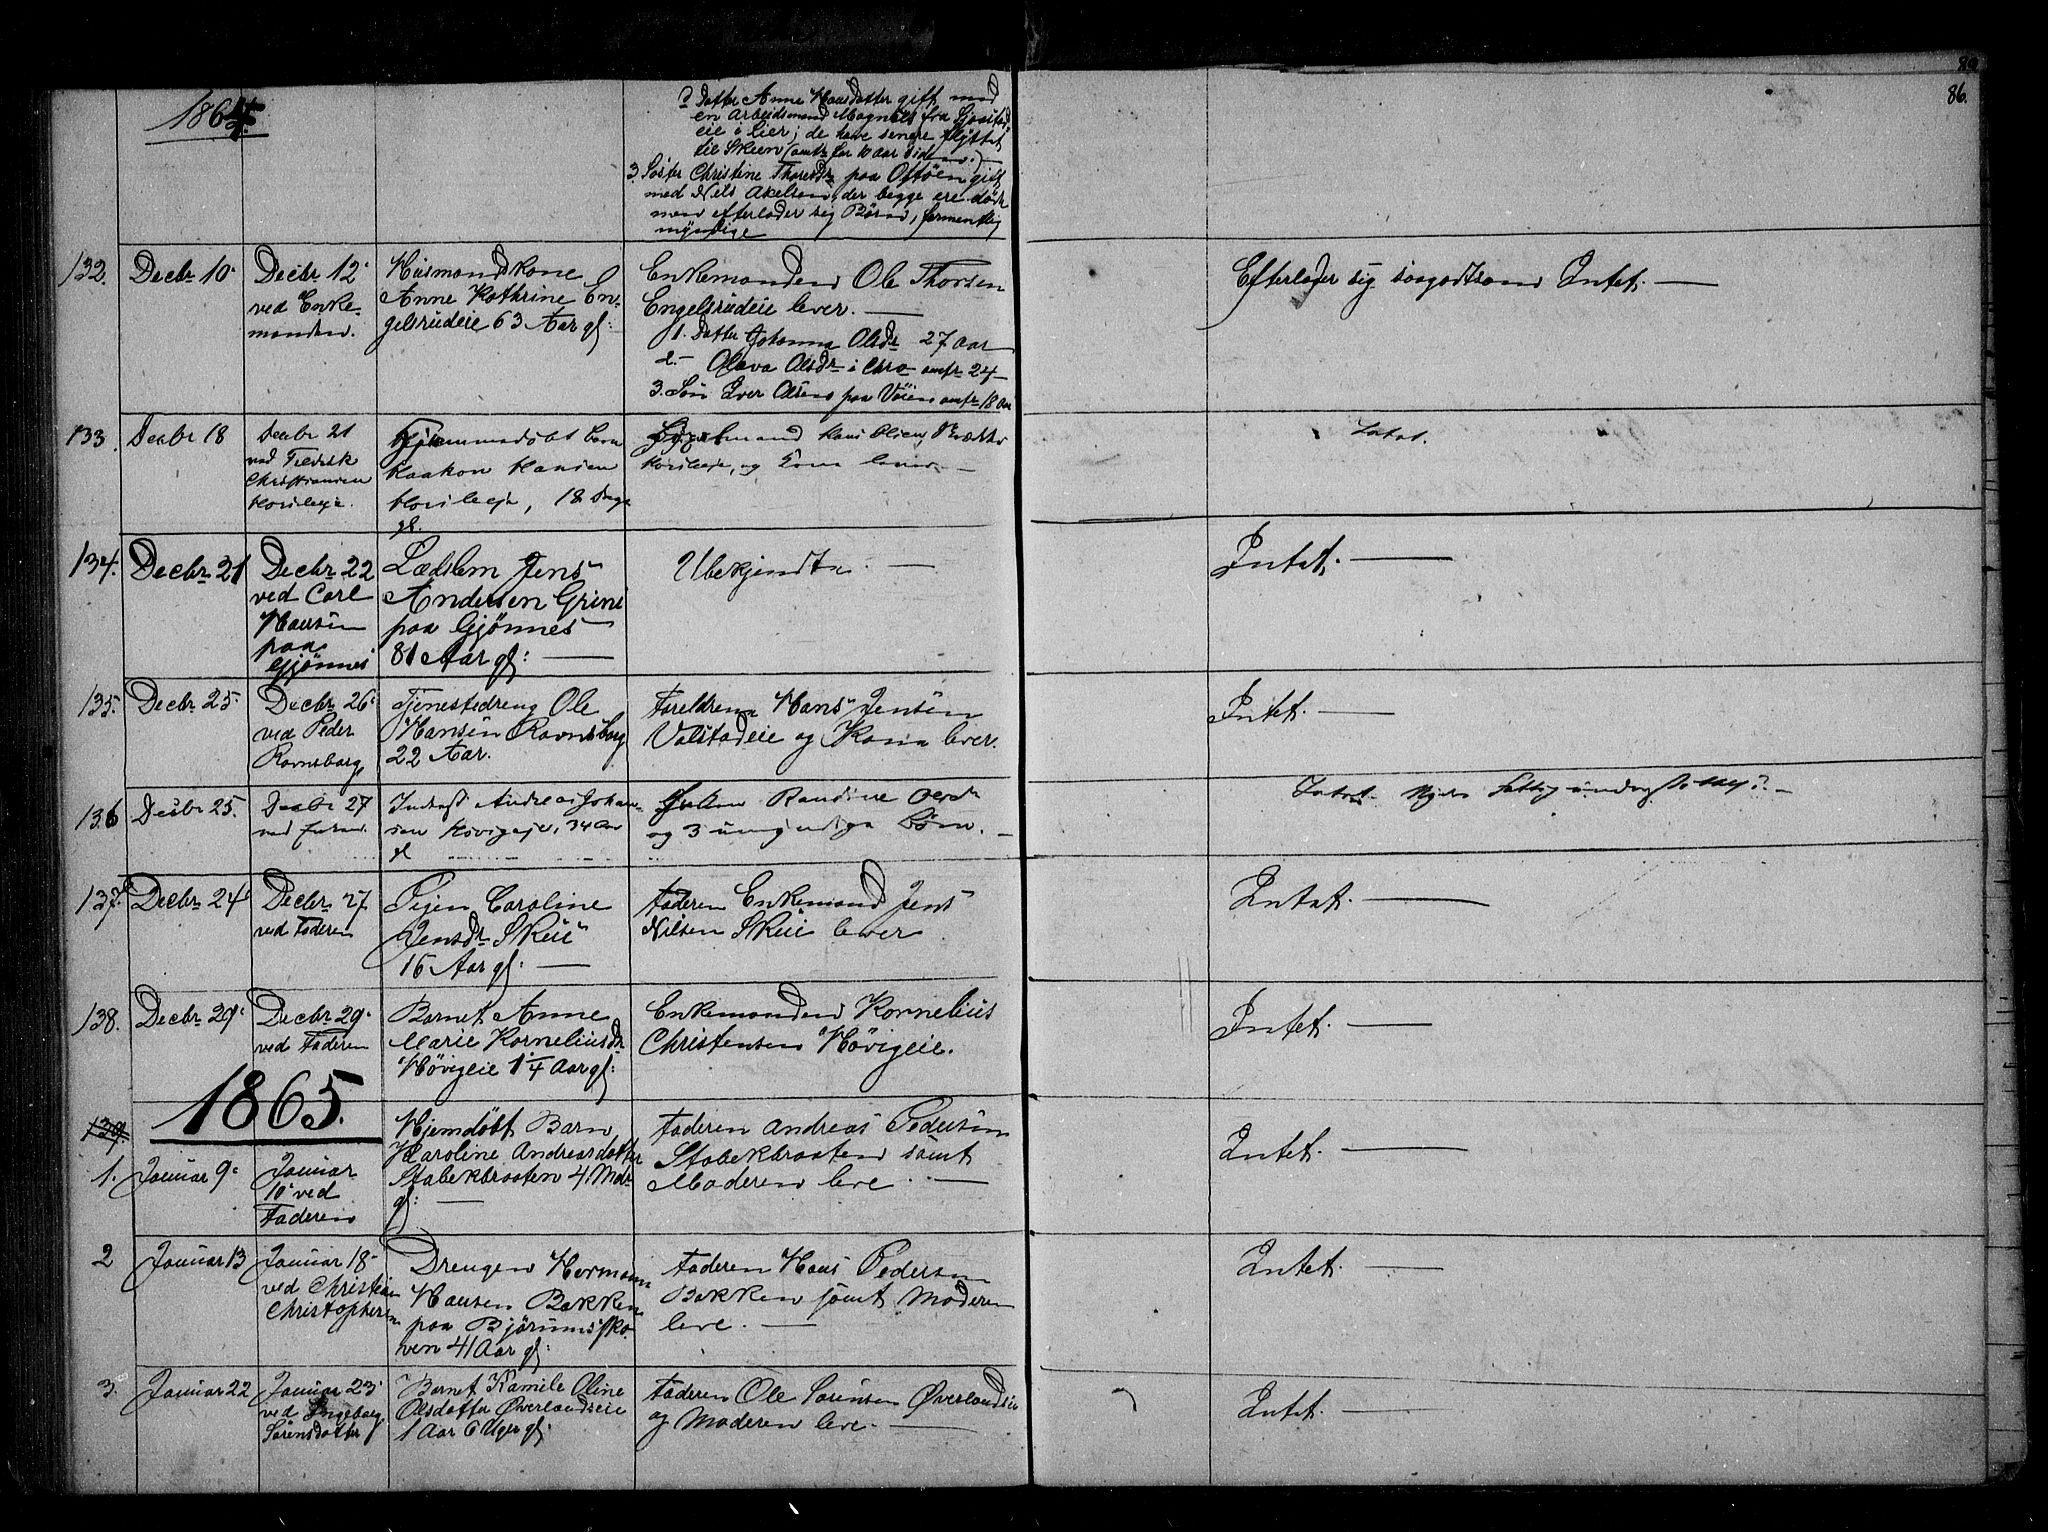 86.
1864.
2 Datter Anne Hansdatter gift med
en Arbeidsmand Magnus fra
eie i Lier; de have senere flyttet
til Skien (omtr for 10 Aar siden.)
3. Søster Christine Thoresdr paa Ostøen gift
med Nils Akelsen, der begge ere døde
men efterlader sig Børn, formentlig
myndige
132. Decbr 10. Decbr 12.
ved Enke-
manden.
Husmandskone
Anne Kathrine En-
gelsrudeie 63 Aar gl:
Enkemanden Ole Thorsen
Engelsrudeie lever. —
1. Datter Johanna Olsdr 27 Aar
2. — Olava Olsdr i Chra omtr 24 —
3. Søn Iver Olsen paa Vøien omtr 18 Aar
Efterlader sig saagodtsom Intet. —
133. Decbr 18 Decbr 21
ved Fredrik
Christiansen
Horsleeje.
Hjemmedøbt barn
Haakon Hansen
Horsleeje, 18 Dage
gl.
mand Hans Olsen
og Kone lever. —
Intet.
134. Decbr 21 Decbr 22
ved Carl
Hansen
paa
Gjønnes
Lædslem Jens
Andersen Grini
paa Gjønnes
81 Aar gl: —
Ubekjendte. —
Intet. —
135. Decbr 25. Decbr 26.
ved Peder
Ravnsborg
Tjenestedreng Ole
Hansen Ravnsborg
22 Aar.
Foreldrene Hans Jensen
Valstadeie og Kone lever.
Intet. —
136 Decbr 25. Decbr 27
ved Enken.
Inderst Andreas Johan-
sen Høvigeje, 34 Aar
gl
Enken Randine
og 3 umyndige Børn. —
Intet. Nyder Fattigunderstøttelse. —
137. Decbr 24. Decbr 27
ved Faderen
Pigen Caroline
Jensdr Skui
16 Aar gl: —
Faderen Enkemand Jens
Nilsen Skui lever
Intet. —
138. Decbr 29. Decbr 29.
ved Faderen
Barnet Anne
Marie Korneliusdr
Høvigeie 1 1/4 Aar gl:
Enkemanden Kornelius
Christensen Høvigeie.
Intet. —
1865.
139.
1. Januar 9. Januar
10. ved
Faderen
Hjemdøbt Barn
Karoline Andreasdatter
Stabekbraaten 4 Mdr
gl: —
Faderen Andreas Pedersen
Stabekbraaten samt
Moderen leve. —
Intet. —
2 Januar 13 Januar 18.
ved Christian
Christophersen
Drengen Herman
Hansen Bakken
paa Bjørumssko-
ven 41 Aar gl:
Faderen Hans Pedersen
Bakken samt Moderen
leve. —
Intet. —
3. Januar 22 Januar 23.
ved Ingeborg
Sørensdatter
Barnet Kamile Oline
Olsdatter Øverlandseie
1 Aar 6 Uger gl:
Faderen Ole Sørensen Øverlandseie
og Moderen leve. —
Intet. —